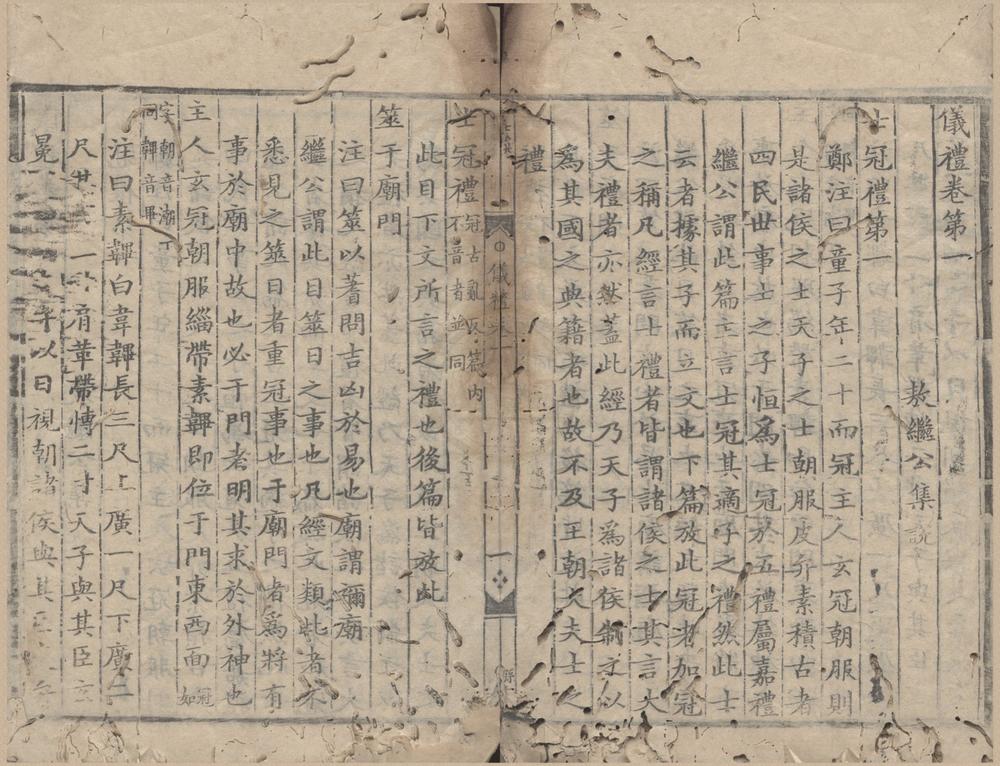 儀禮卷第一
敖繼公集說
士冠禮第一
鄭注曰童子年二十而冠主人玄冠朝服則
是諸侯之士天子之士朝服皮弁素積古者
四民世事士之子恒爲士冠於五禮屬嘉禮
繼公謂此篇主言士冠其適子之禮然此士
云者據其子而立文也下篇放此冠者加冠
之稱凡經言士禮者皆謂諸侯之士其言大
夫禮者亦然蓋此經乃天子爲諸侯制之以
爲其國之典籍者也故不及王朝大夫士之
禮
儀禮卷一
士冠禮冠古亂反篇内
不音者並同
此目下文所言之禮也後篇皆放此
筮于廟門
注曰筮以蓍問吉凶於易也廟謂禰廟
繼公謂此目筮日之事也凡經文類此者不
悉見之筮日者重冠事也于廟門者爲將有
事於廟中故也必于門者明其求於外神也
主人玄冠朝服緇帶素韠即位于門東西面冠
如
字朝音潮
同韠音畢
注曰素韠白韋韠長三尺上廣一尺下廣二
尺 一寸肩革帶博二寸天子與其臣玄
冕 以日視朝諸侯與其臣